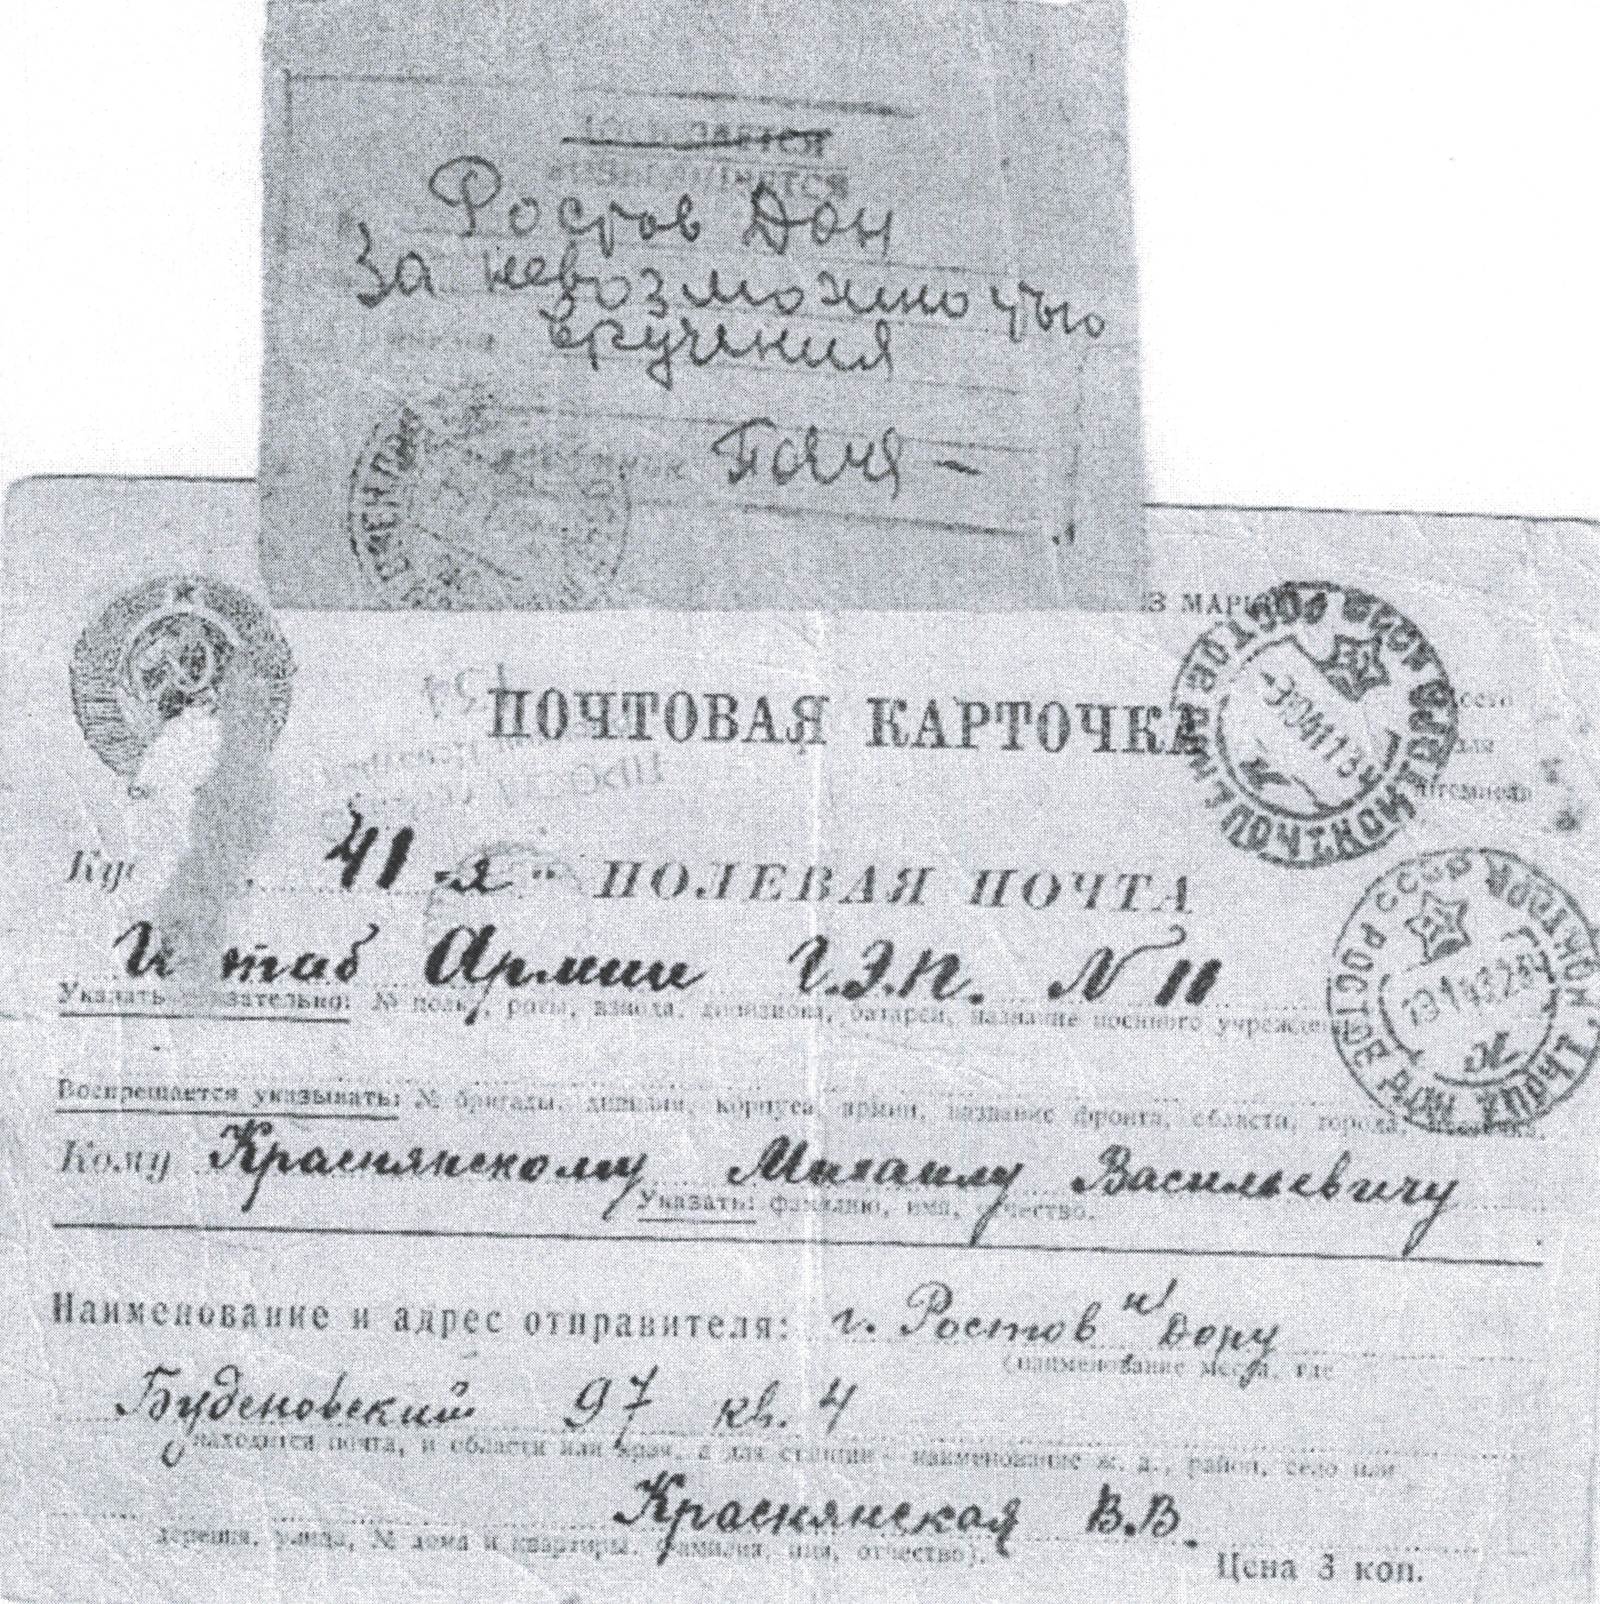 Ростов Дон
За невозможностью
вручения
ПОЧТОВАЯ КАРТОЧКА
41-я " ПОЛЕВАЯ ПОЧТА
Штаб Армии Г.Э.П. N 11
Указать обязательно: № полка, роты, взвода, дивизиона, батареи, название военного учреждения
Воспрещается указывать: № бригады, дивизии, корпуса, армии, название фронта, области, города, местечка.
Кому Краснянскому Михаилу Васильевичу
Указать: фамилию, имя, отчество.
Наименование и адрес отправителя: г. Ростов н/Дону
(наименование места, где
Буденовский 97 кв. 4
находится почта, и области или края, а для станции - наименование ж. д., район, село или
Краснянская В.В.
деревня, улица, № дома и квартиры. Фамилия, имя, отчество).
Цена 3 коп.